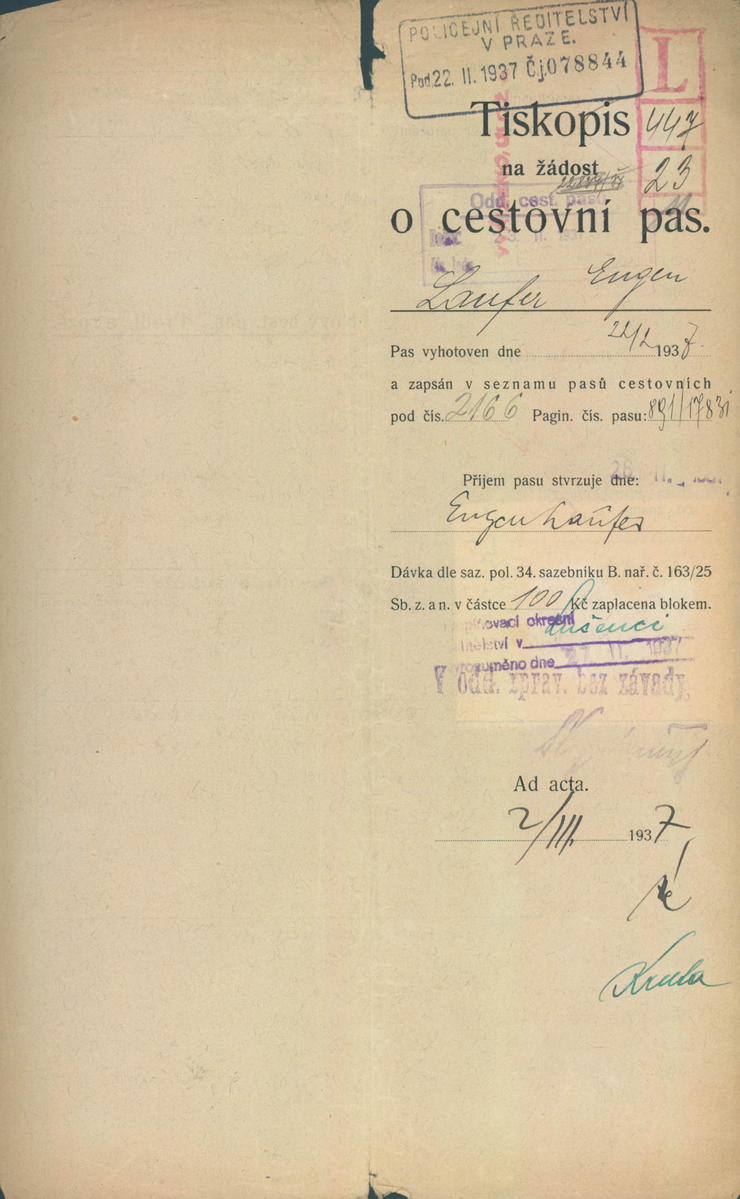 POLICEJNÍ ŘEDITELSTVÍ
V PRAZE.
Pod. 22. II. 1937 Čj. 078844
L
447
23
Tiskopis
na žádost
Odd. cest. pasů
o cestovní pas.
Laufer Eugen
Pas vyhotoven dne 22/2 1937.
a zapsán v seznamu pasů cestovních
pod čís. 2166 Pagin. čís. pasu: 891/17831
Příjem pasu stvrzuje dne:
Eugen Laufer
Dávka dle saz. pol. 34. sazebniku B. nař. č. 163/25
Sb. z. a n. v částce 100 Kč zaplacena blokem.
okresní
Lušenci
litelství v
vrozuměno dne II. 1937
V odd. zprav. bez závady.
Ad acta.
2/III. 1937